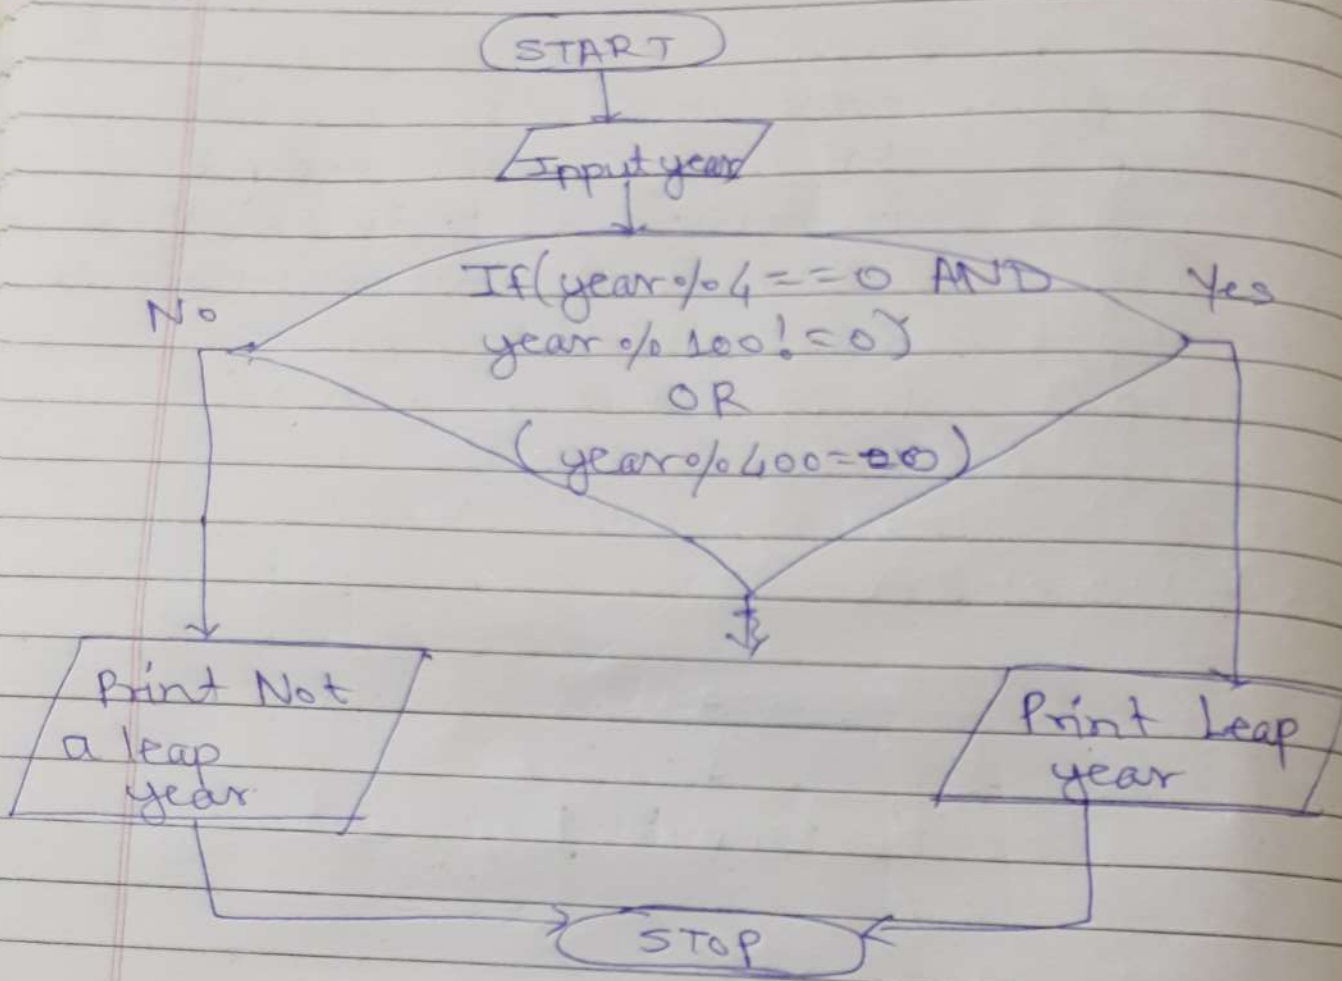 START
Input year
If(year%4==0 AND
No
Yes
year%100!=0)
OR
(year%400==0)
Print Not
a leap
year
Print Leap
year
STOP